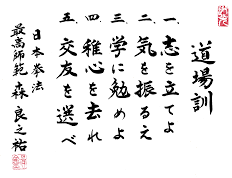 道場訓
一、志を立てよ
二、気を振るえ
三、学に勉めよ
四、稚心を去れ
五、交友を選べ
日本拳法
最高師範 森 良之祐